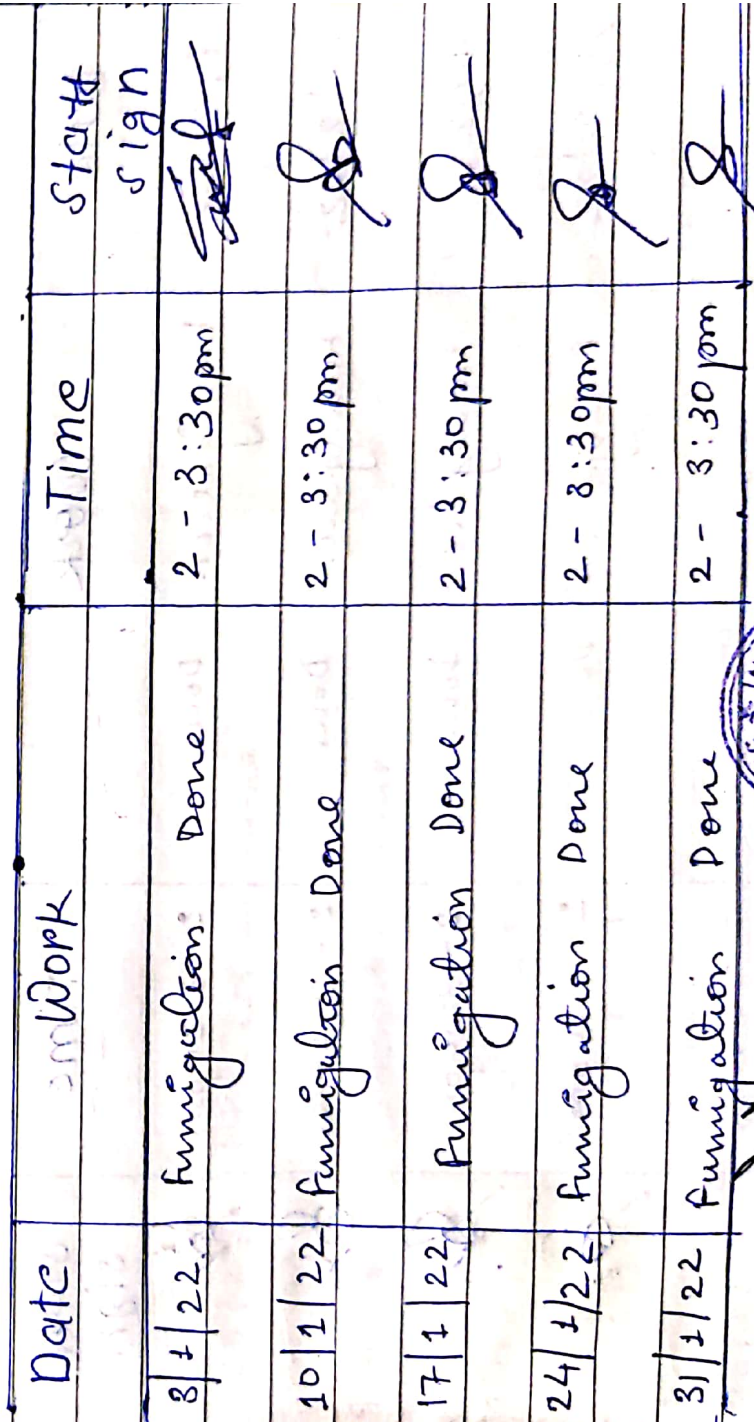 Date Work Time Staff
sign
3/1/22 Fumigation Done 2 - 3:30pm
10/1/22 Fumigation Done 2 - 3:30pm
17/1/22 Fumigation Done 2 - 3:30pm
24/1/22 Fumigation Done 2 - 3:30pm
31/1/22 Fumigation Done 2 - 3:30pm